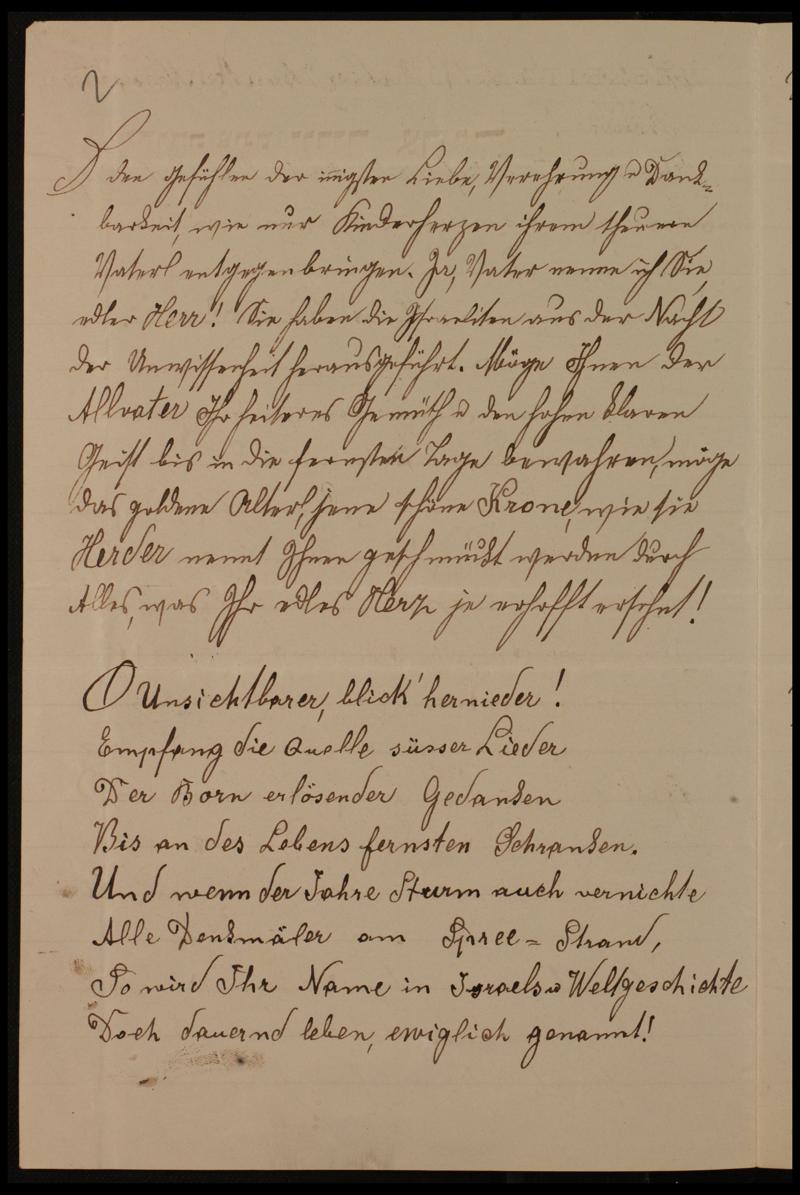 2
den Gefühlen der innigsten Liebe, Verehrung u Dank=
barkeit, wie nur Kinderherzen ihrem theuern
Vater entgegenbringen. Ja, Vater nenne ich Sie,
edler Herr! Sie haben die Israeliten aus der Nacht
der Unwissenheit herausgeführt. Möge Ihnen der
Allvater Ihr heiteres Gemüth u den hohen klaren
Geist bis in die fernsten Tage bewahren, möge
das goldene Alter, jene schöne Krone, wie sie
Herder nennt Ihnen geschmückt werden durch
Alles, was Ihr edles Herz je erhofft ersehnt!
O Unsichtbarer, blick' hernieder!
Empfang die Quelle süsser Lieder
Der Born erlösender Gedanken
Bis an des Lebens fernsten Schranken.
Und wenn der Jahre Sturm auch vernichte
Alle Denkmäler am Spree=Strand,
So wird Ihr Name in Israels u Weltgeschichte
Doch dauernd leben, ewiglich genannt!